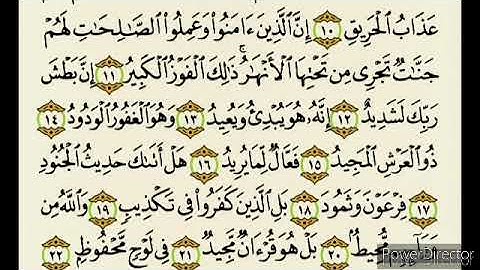 عَذَابُ الْحَرِيقِ ١٠ إِنَّ الَّذِينَ ءَامَنُوا۟ وَعَمِلُوا۟ الصَّالِحَاتِ لَهُمْ
جَنَّتٌ تَجْرِى مِن تَحْتِهَا الْأَنْهَرُ ۚ ذَٰلِكَ الْفَوْزُ الْكَبِيرُ ١١ إِنَّ بَطْشَ
رَبِّكَ لَشَدِيدٌ ١٢ إِنَّهُۥ هُوَ يُبْدِئُ وَيُعِيدُ ١٣ وَهُوَ الْغَفُورُ الْوَدُودُ ١٤
ذُو الْعَرْشِ الْمَجِيدُ ١٥ فَعَّالٌ لِّمَا يُرِيدُ ١٦ هَلْ أَتَىٰكَ حَدِيثُ الْجُنُودِ
١٧ فِرْعَوْنَ وَثَمُودَ ١٨ بَلِ الَّذِينَ كَفَرُوا۟ فِى تَكْذِيبٍ ١٩ وَاللَّهُ مِن
مُّحِيطٌ ٢٠ بَلْ هُوَ قُرْءَانٌ مَّجِيدٌ ٢١ فِى لَوْحٍ مَّحْفُوظٍ ٢٢
PowerDirector